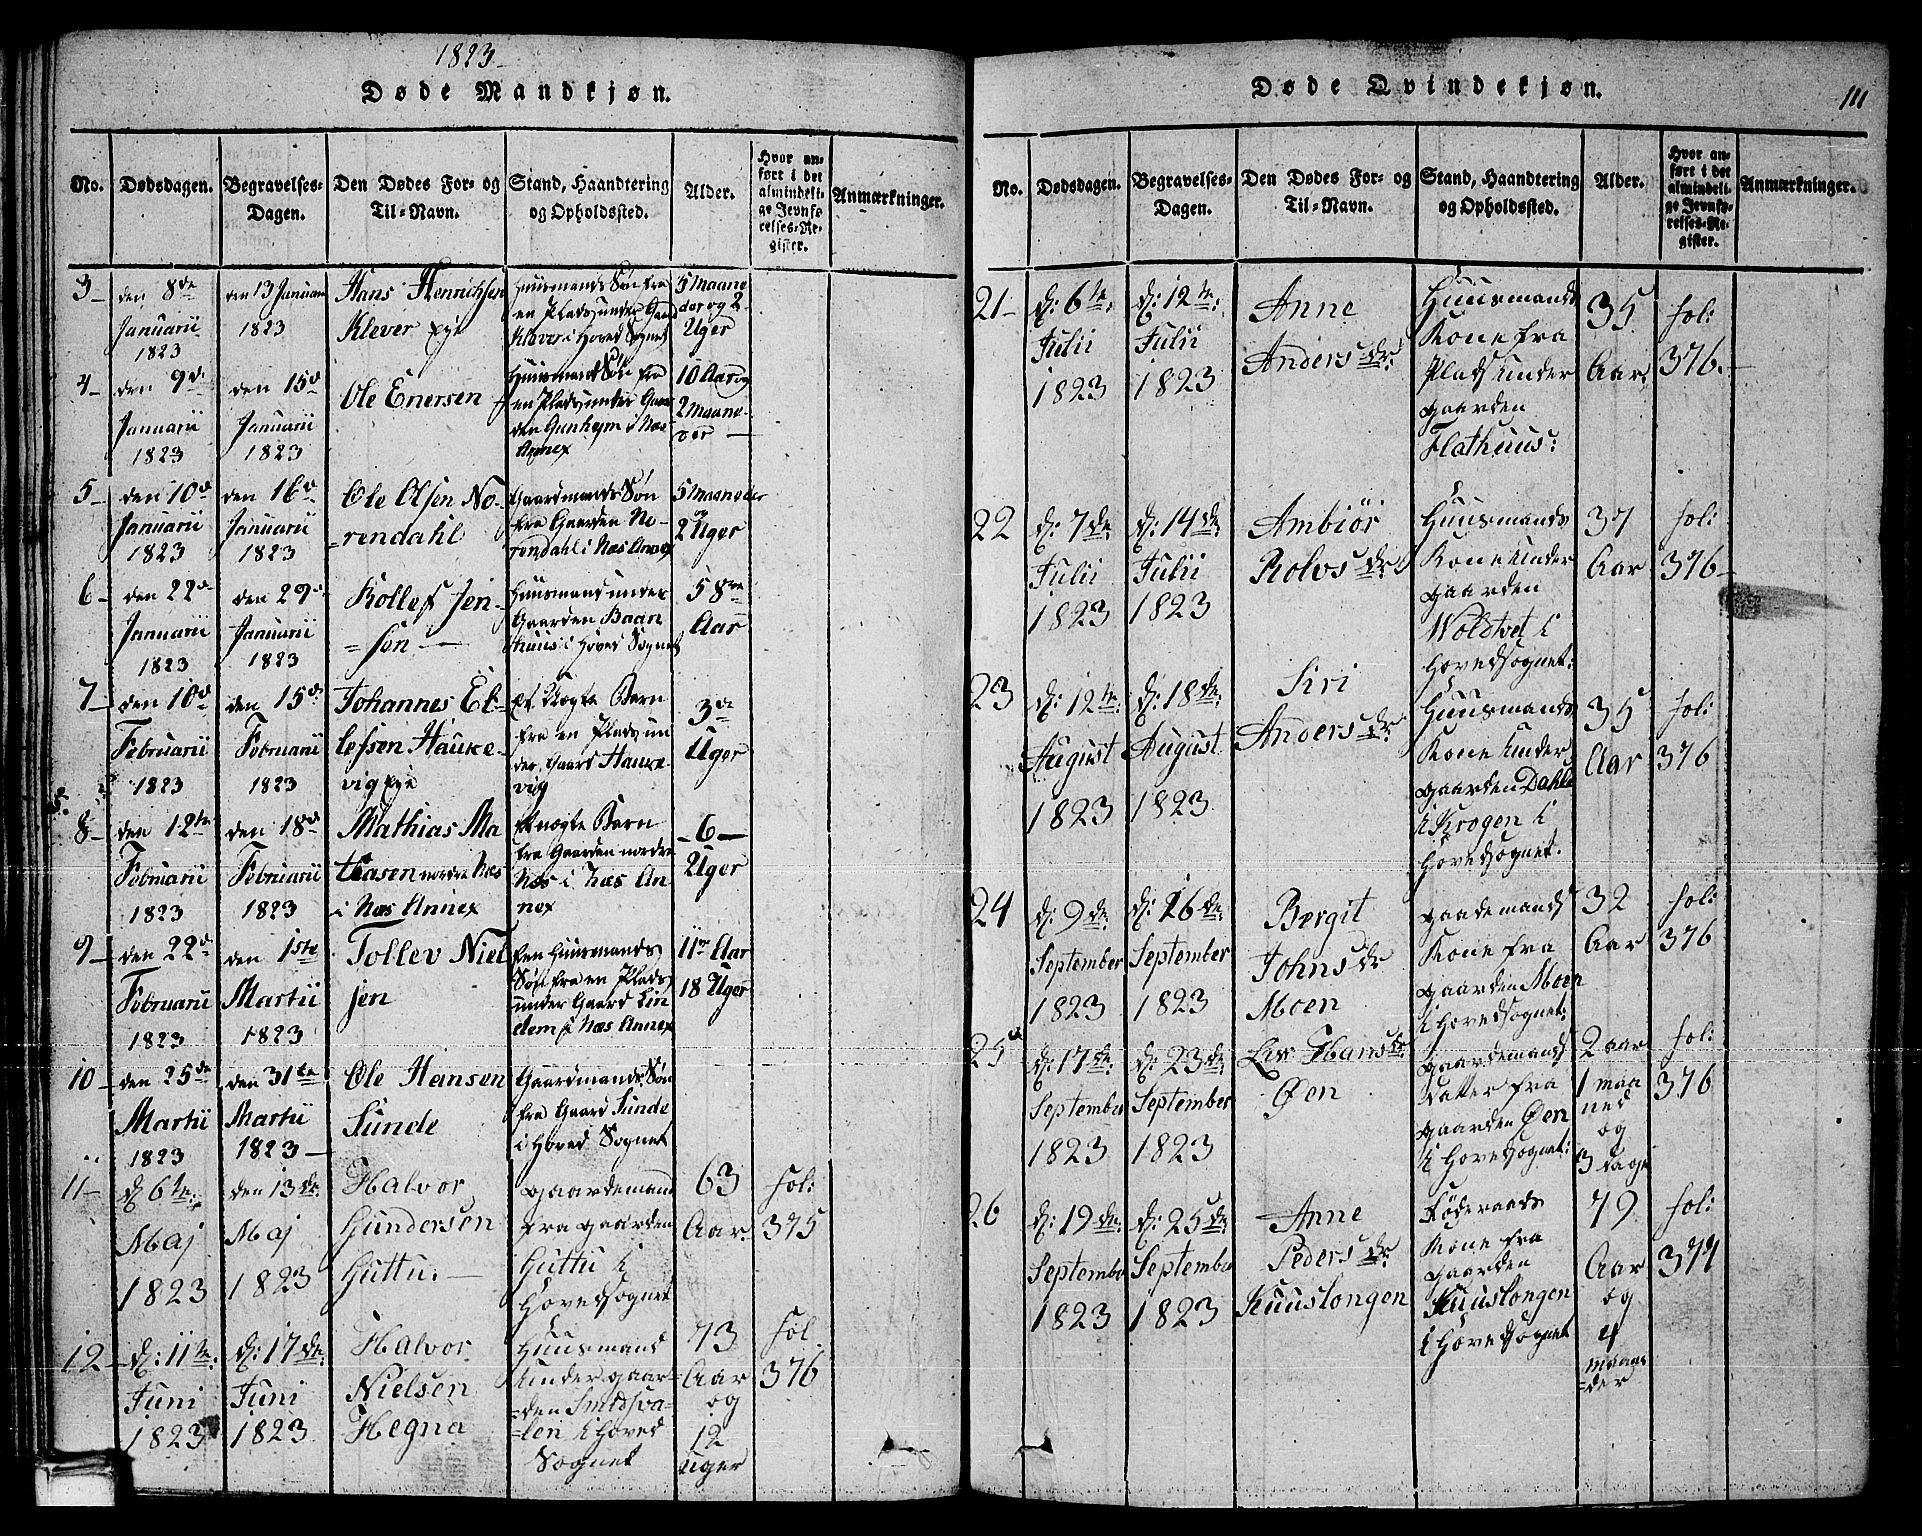 1823
Døde Mandkjøn.
No.
Dødsdagen.
Begravelses-
Dagen.
Den Dødes For- og
Til-Navn.
Stand, Haandtering
og Opholdssted.
Alder.
Hvor an-
ført i det
almindeli-
ge Jevnfø-
relses-Re-
gister.
Anmærkninger.
3
den 8de
Januarii
1823
den 13 Januarii
1823
Hans Henrichsen
Klever eye
Huusmands Søn fra
en Plads under Gaard
Klever i Hoved Sognet
5 Maane
der og 2
Uger
4
den 9de
Januarii
1823
den 15d
Januarii
1823
Ole Enersen
Huusmands Søn fra
en Plads under Gaar
den Gunheym i Næs
Annex
10 Aar og
2 Maane-
der
5
den 10d
Januarii
1823
den 16d
Januarii
1823
Ole Olsen No-
rendahl
Gaardmands Søn
fra Gaarden No-
rendahl i Næs Annex
5 Maaneder
og
2 Uger
6
den 22d
Januarii
1823
den 29d
Januarii
1823
Kollef Jen-
sen
Huusmand under
Gaarden Baan
huus i Hoved Sognet
58de
Aar
7
den 10d
Februarii
1823
den 15d
Februarii
1823
Johannes El-
lefsen Hauke-
vig eye
Et Uægte Barn
fra en Plads un
der Gaard Hauke
vig
3de
Uger
8
den 12te
Februarii
1823
den 18d
Februarii
1823
Mathias Ma
thiasen nordre Næs
i Næs Annex
Et uægte Barn
fra Gaarden nordre
Næs i Næs An-
nex
6
Uger
9
den 22d
Februarii
1823
den 1ste
Martii
1823
Tollev Niel
sen
En Huusmands
Søn fra en Plads
under Gaard Lin
dem i Næs Annex
11te Aar
18 Uger
10
den 25de
Martii
1823
den 31te
Martii
1823
Ole Hansen
Sunde
Gaardmands Søn
fra Gaard Sunde
i Hoved Sognet
11
d: 6te
Maj
1823
den 13de
Maj
1823
Halvor
Gundersen
Guttu.
gaardemand
fra gaarden
Guttu i
Hovedsognet
63
Aar
fol:
375
12
d: 11te
Juni
1823
d: 17de
Juni
1823
Halvor
Nielsen
Hegna
Huusmand
under gaar-
den Smedsva-
len i Hoved
Sognet
73
Aar
og
12
Uger
fol
376
Døde Qvindekjøn.
111
No.
Dødsdagen.
Begravelses-
Dagen.
Den Dødes For- og
Til-Navn.
Stand, Haandtering
og Opholdssted.
Alder.
Hvor an-
ført i det
almindeli-
ge Jevnfø-
relses-Re-
gister.
Anmærkninger.
21
d: 6te
Julii
1823
d: 12te
Julii
1823
Anne
Anders dr.
Huusmands
Kone fra
Plads under
gaarden
Flathuus:
35
Aar
fol:
376.
22
d: 7de
Julii
1823
d: 14de
Julii
1823
Ambiör
Rolvs dr
Huusmands
Kone under
gaarden
Woldtvet i
hovedsognet:
37
Aar
fol:
376
23
d: 12te
August
1823
d: 18de
August
1823
Siri
Anders dr
Huusmands
Kone under
gaarden Dahle
i Krogen i
hovedsognet.
35
Aar
fol:
376
24
d: 9de
September
1823
d: 16de
September
1823
Bergit
Johns dr
Moen
gaardemands
Kone fra
gaarden Moen
i hovedsognet:
32
Aar
fol:
376
25
d: 17de
September
1823
d: 23de
September
1823
Liv Hans dr
Øen
gaardemands
datter fra
gaarden Øen
i hovedsognet:
2 aar
1 maa
ned
og
3 dage
fol:
376
26
d: 19de
September
1823
d: 25de
September
1823
Anne
Peders dr
Kuuslongen
Föderaads
Kone fra
gaarden
Kuuslongen
i hovedsognet
79
Aar
og
4
maane
der
fol:
377